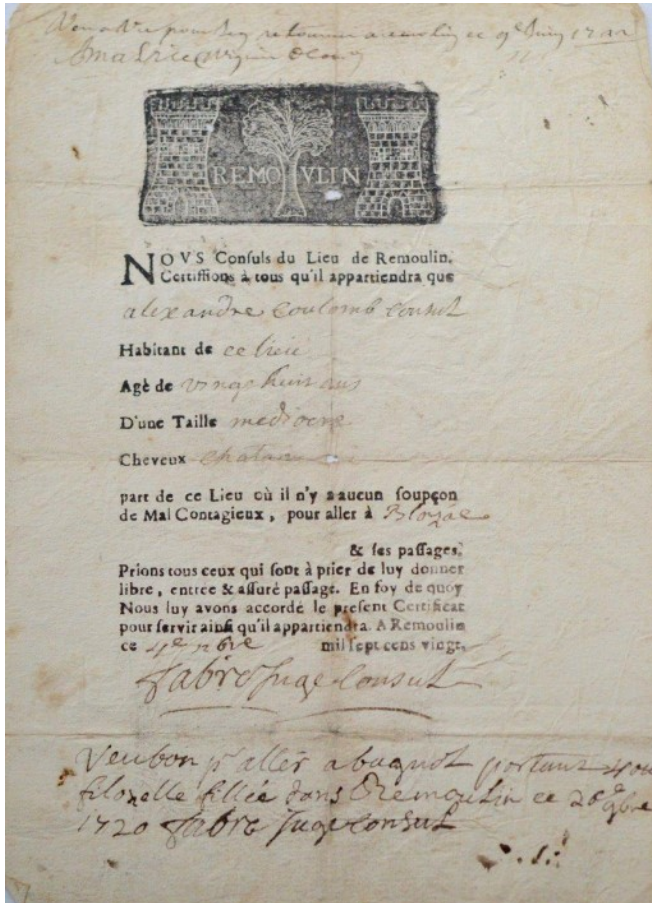 REMO VLIN
NOVS Conſuls du Lieu de Remoulin.
Certiffions à tous qu'il appartiendra que
alexandre Coulomb Consul
Habitant de ce lieu
Agè de vingt huit ans
D'une Taille mediocre
Cheveux chatan
part de ce Lieu où il n'y a aucun ſoupçon
de Mal Contagieux, pour aller à Blozac
& ſes paſſages,
Prions tous ceux qui ſont à prier de luy donner
libre, entrée & aſſuré paſſage. En foy de quoy
Nous luy avons accordé le preſent Certificat
pour ſervir ainſi qu'il appartiendra. A Remoulin
ce 4e mil ſept cens vingt,
fabre Juge Consul
Veu bon pr aller a portant
filozelle fillée dans Remoulin ce 26e
1720 fabre Juge Consul